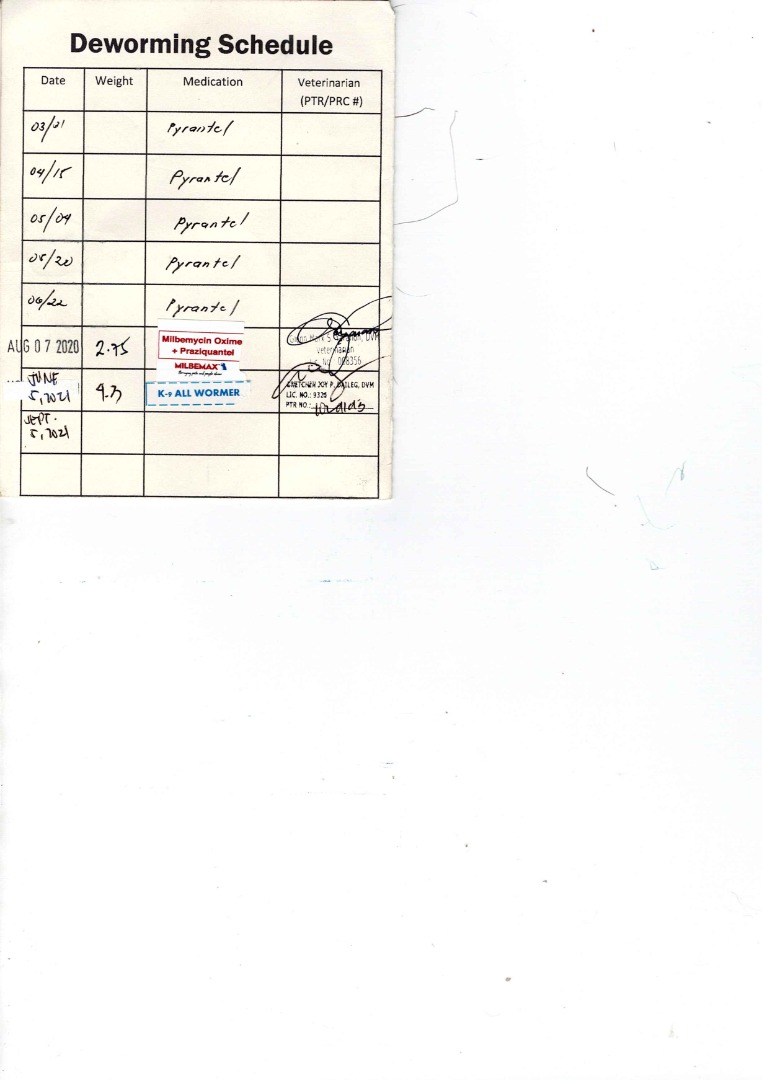 Deworming Schedule
Date Weight Medication Veterinarian
(PTR/PRC #)
03/21 Pyrantel
04/15 Pyrantel
05/04 Pyrantel
05/20 Pyrantel
06/22 Pyrantel
AUG 07 2020 2.75 Milbemycin Oxime
+ Praziquantel
MILBEMAX
Veterinarian
JUNE
5, 2021 4.3 K-9 ALL WORMER
GRETCHEN JOY P. DVM
LIC. NO.: 9325
PTR NO.:
SEPT.
5, 2021